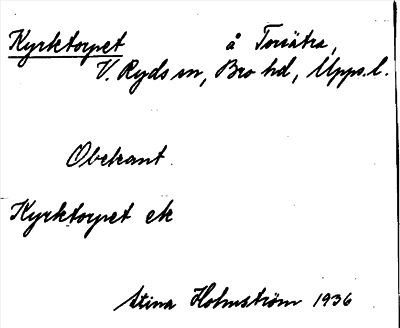 Kyrktorpet å Torsätra,
V. Ryds sn, Bro hd, Upps. l.
Obekant.
Kyrktorpet ek
Stina Holmström 1936